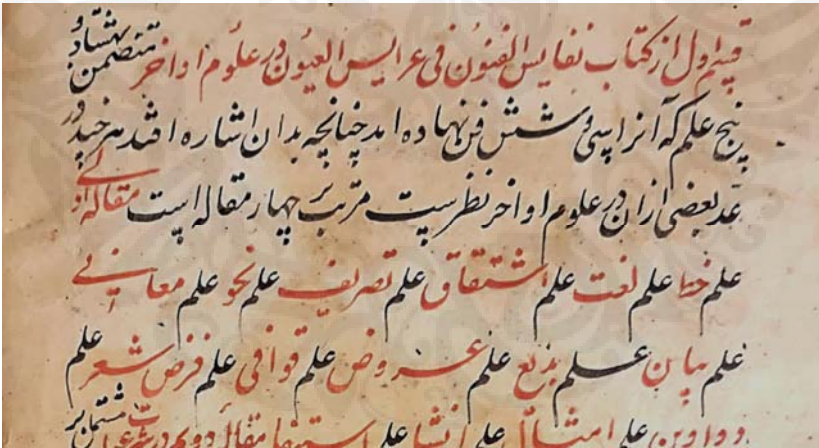 قسم اول از کتاب نفایس الفنون فی عرایس العیون در علوم اواخر متضمن هشتاد و
پنج علم که آنرا بسی و شش فن نهاده اند چنانچه بدان اشاره افتد هر چند در
عد بعضی ازان در علوم اواخر نظرست مرتب بر چهار مقاله است مقاله اولی
علم خط علم لغت علم اشتقاق علم تصریف علم نحو علم معانی
علم بیان علم بدیع علم عروض علم قوافی علم قرض شعر علم
دواوین علم امثال علم انشا علم استیفا مقاله دویم در شرعیات مشتمل بر